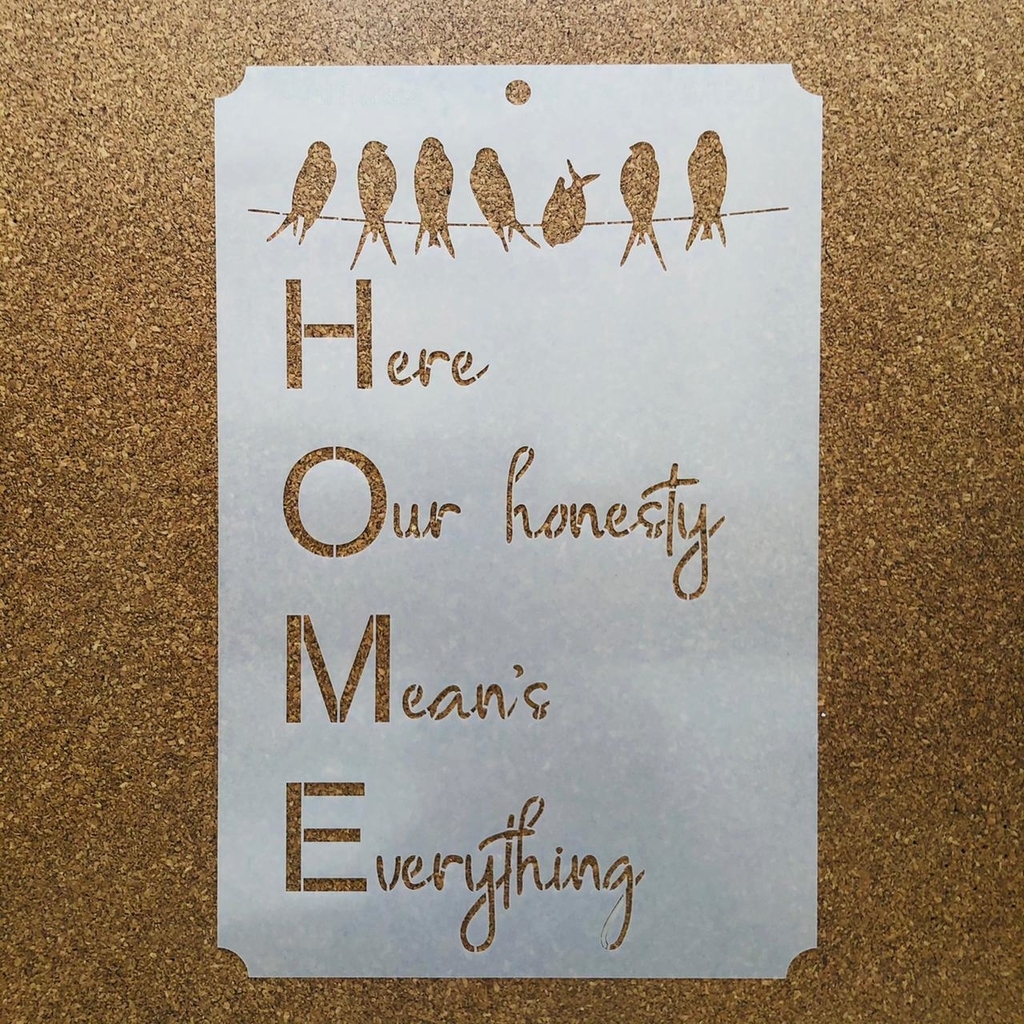 Here
Our honesty
Mean's
Everything